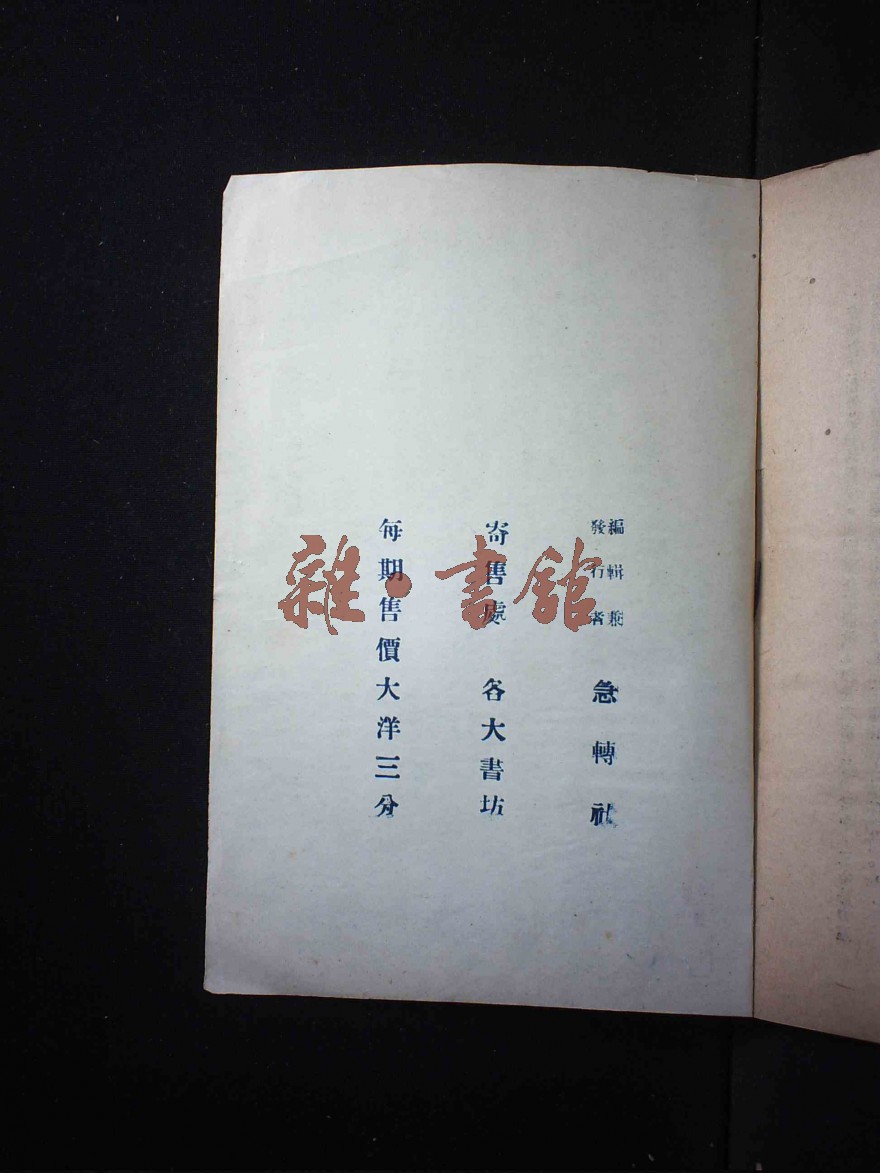 編輯兼
發行者
急轉社
寄售處 各大書坊
每期售價大洋三分
雜·書館